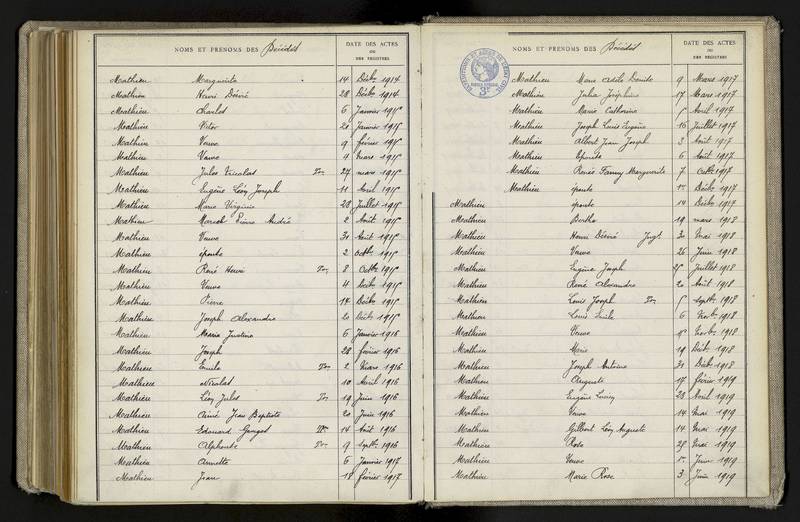 NOMS ET PRÉNOMS DES Décédés
DATE DES ACTES
OU
DES REGISTRES
Mathieu Marguerite 14 Déc. 1914
Mathieu Henri Désiré 28 Déc. 1914
Mathieu Charles 6 Janvier 1915
Mathieu Victor 20 Janvier 1915
Mathieu Veuve 9 février 1915
Mathieu Veuve 4 Mars 1915
Mathieu Jules Nicolas 27 mars 1915
Mathieu Eugène Léon Joseph 11 Avril 1915
Mathieu Marie Virginie 28 Juillet 1915
Mathieu Marcel Pierre André 2 Août 1915
Mathieu Veuve 31 Août 1915
Mathieu épouse 2 Octb. 1915
Mathieu René Henri 8 Octb. 1915
Mathieu Veuve 4 Déc. 1915
Mathieu Pierre 14 Déc. 1915
Mathieu Joseph Alexandre 20 Déc. 1915
Mathieu Marie Justine 6 Janvier 1916
Mathieu Joseph 28 février 1916
Mathieu Emile 2 Mars 1916
Mathieu Nicolas 10 Avril 1916
Mathieu Léon Jules 19 Juin 1916
Mathieu Aimé Jean Baptiste 20 Juin 1916
Mathieu Edouard Georges 14 Août 1916
Mathieu Alphonse 9 Septb. 1916
Mathieu Annette 6 Janvier 1917
Mathieu Jean 18 février 1917
NOMS ET PRÉNOMS DES Décédés
DATE DES ACTES
OU
DES REGISTRES
Mathieu Marie Adèle 9 Mars 1917
Mathieu Julia Joséphine 17 Mars 1917
Mathieu Marie Catherine Avril 1917
Mathieu Joseph Louis Eugène 16 Juillet 1917
Mathieu Albert Jean Joseph 3 Août 1917
Mathieu épouse 6 Août 1917
Mathieu Renée Fanny Marguerite 7 Octb. 1917
Mathieu épouse Déc. 1917
Mathieu épouse 14 Déc. 1917
Mathieu Berthe 19 mars 1918
Mathieu Henri Désiré Jugt. 30 Mai 1918
Mathieu Veuve 26 Juin 1918
Mathieu Eugène Joseph 25 Juillet 1918
Mathieu René Alexandre 20 Août 1918
Mathieu Louis Joseph Septb. 1918
Mathieu Louis Emile 6 Novb. 1918
Mathieu Veuve Novb. 1918
Mathieu Marie 19 Déc. 1918
Mathieu Joseph Antoine 31 Déc. 1918
Mathieu Auguste 17 février 1919
Mathieu Eugène 28 Avril 1919
Mathieu Veuve 14 Mai 1919
Mathieu Gilbert Léon Auguste 14 Mai 1919
Mathieu Rose 25 Mai 1919
Mathieu Veuve Juin 1919
Mathieu Marie Rose 3 Juin 1919